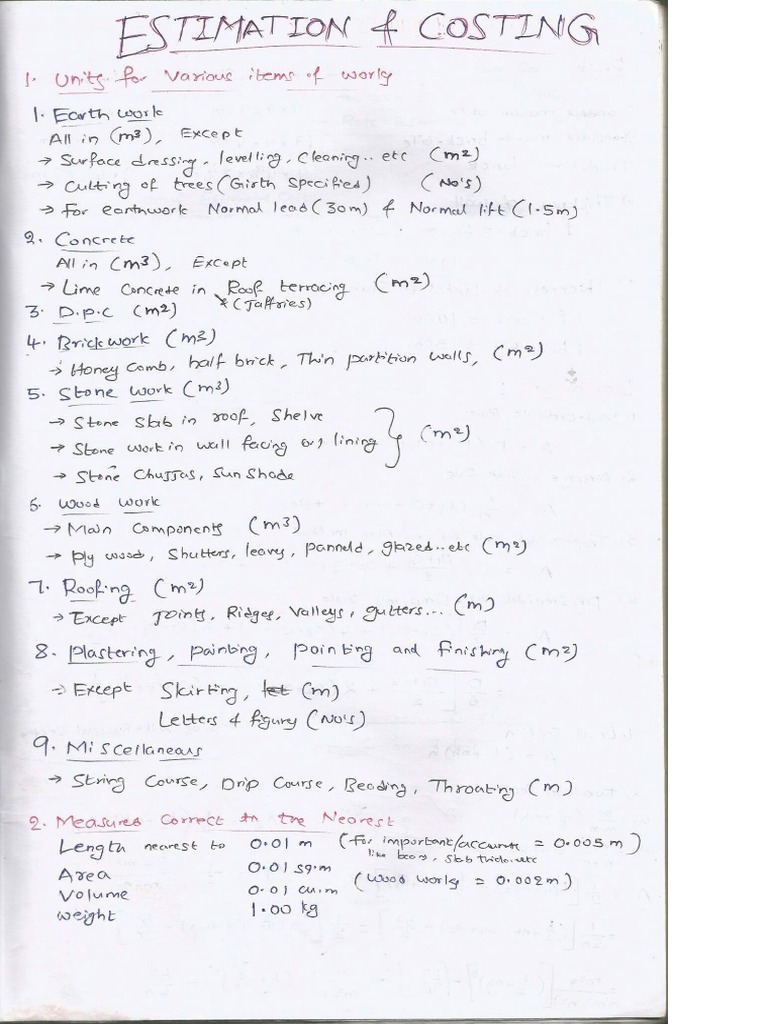 ESTIMATION & COSTING
1. Units for Various items of works
1. Earth work
All in (m3), Except
→ Surface dressing, levelling, Cleaning.. etc (m2)
→ Cutting of trees (Girth Specified) (No's)
→ For earthwork Normal lead (30m) & Normal lift (1.5m)
2. Concrete
All in (m3), Except
→ Lime Concrete in Roof terracing (m2)
(Jaffries)
3. D.p.c (m2)
4. Brickwork (m3)
→ Honey Comb, half brick, Thin partition walls, (m2)
5. Stone work (m3)
→ Stone Slab in roof, Shelve
→ Stone work in wall facing or lining (m2)
→ Stone Chujjas, Sun Shade
6. Wood work
→ Main Components (m3)
→ Ply wood, Shutters, leaves, panneld, glazed..etc (m2)
7. Roofing (m2)
→ Except Joints, Ridges, Valleys, gutters... (m)
8. Plastering, painting, pointing and finishing (m2)
→ Except Skirting, (m)
Letters & figury (No's)
9. Miscellaneous
→ String Course, Drip Course, Beading, Throating (m)
2. Measures Correct to the Nearest
Length nearest to 0.01 m (For important/accurate = 0.005 m)
like beams, slab thick..etc
Area 0.01 sq.m
Volume 0.01 cu.m (Wood works = 0.002m)
weight 1.00 kg